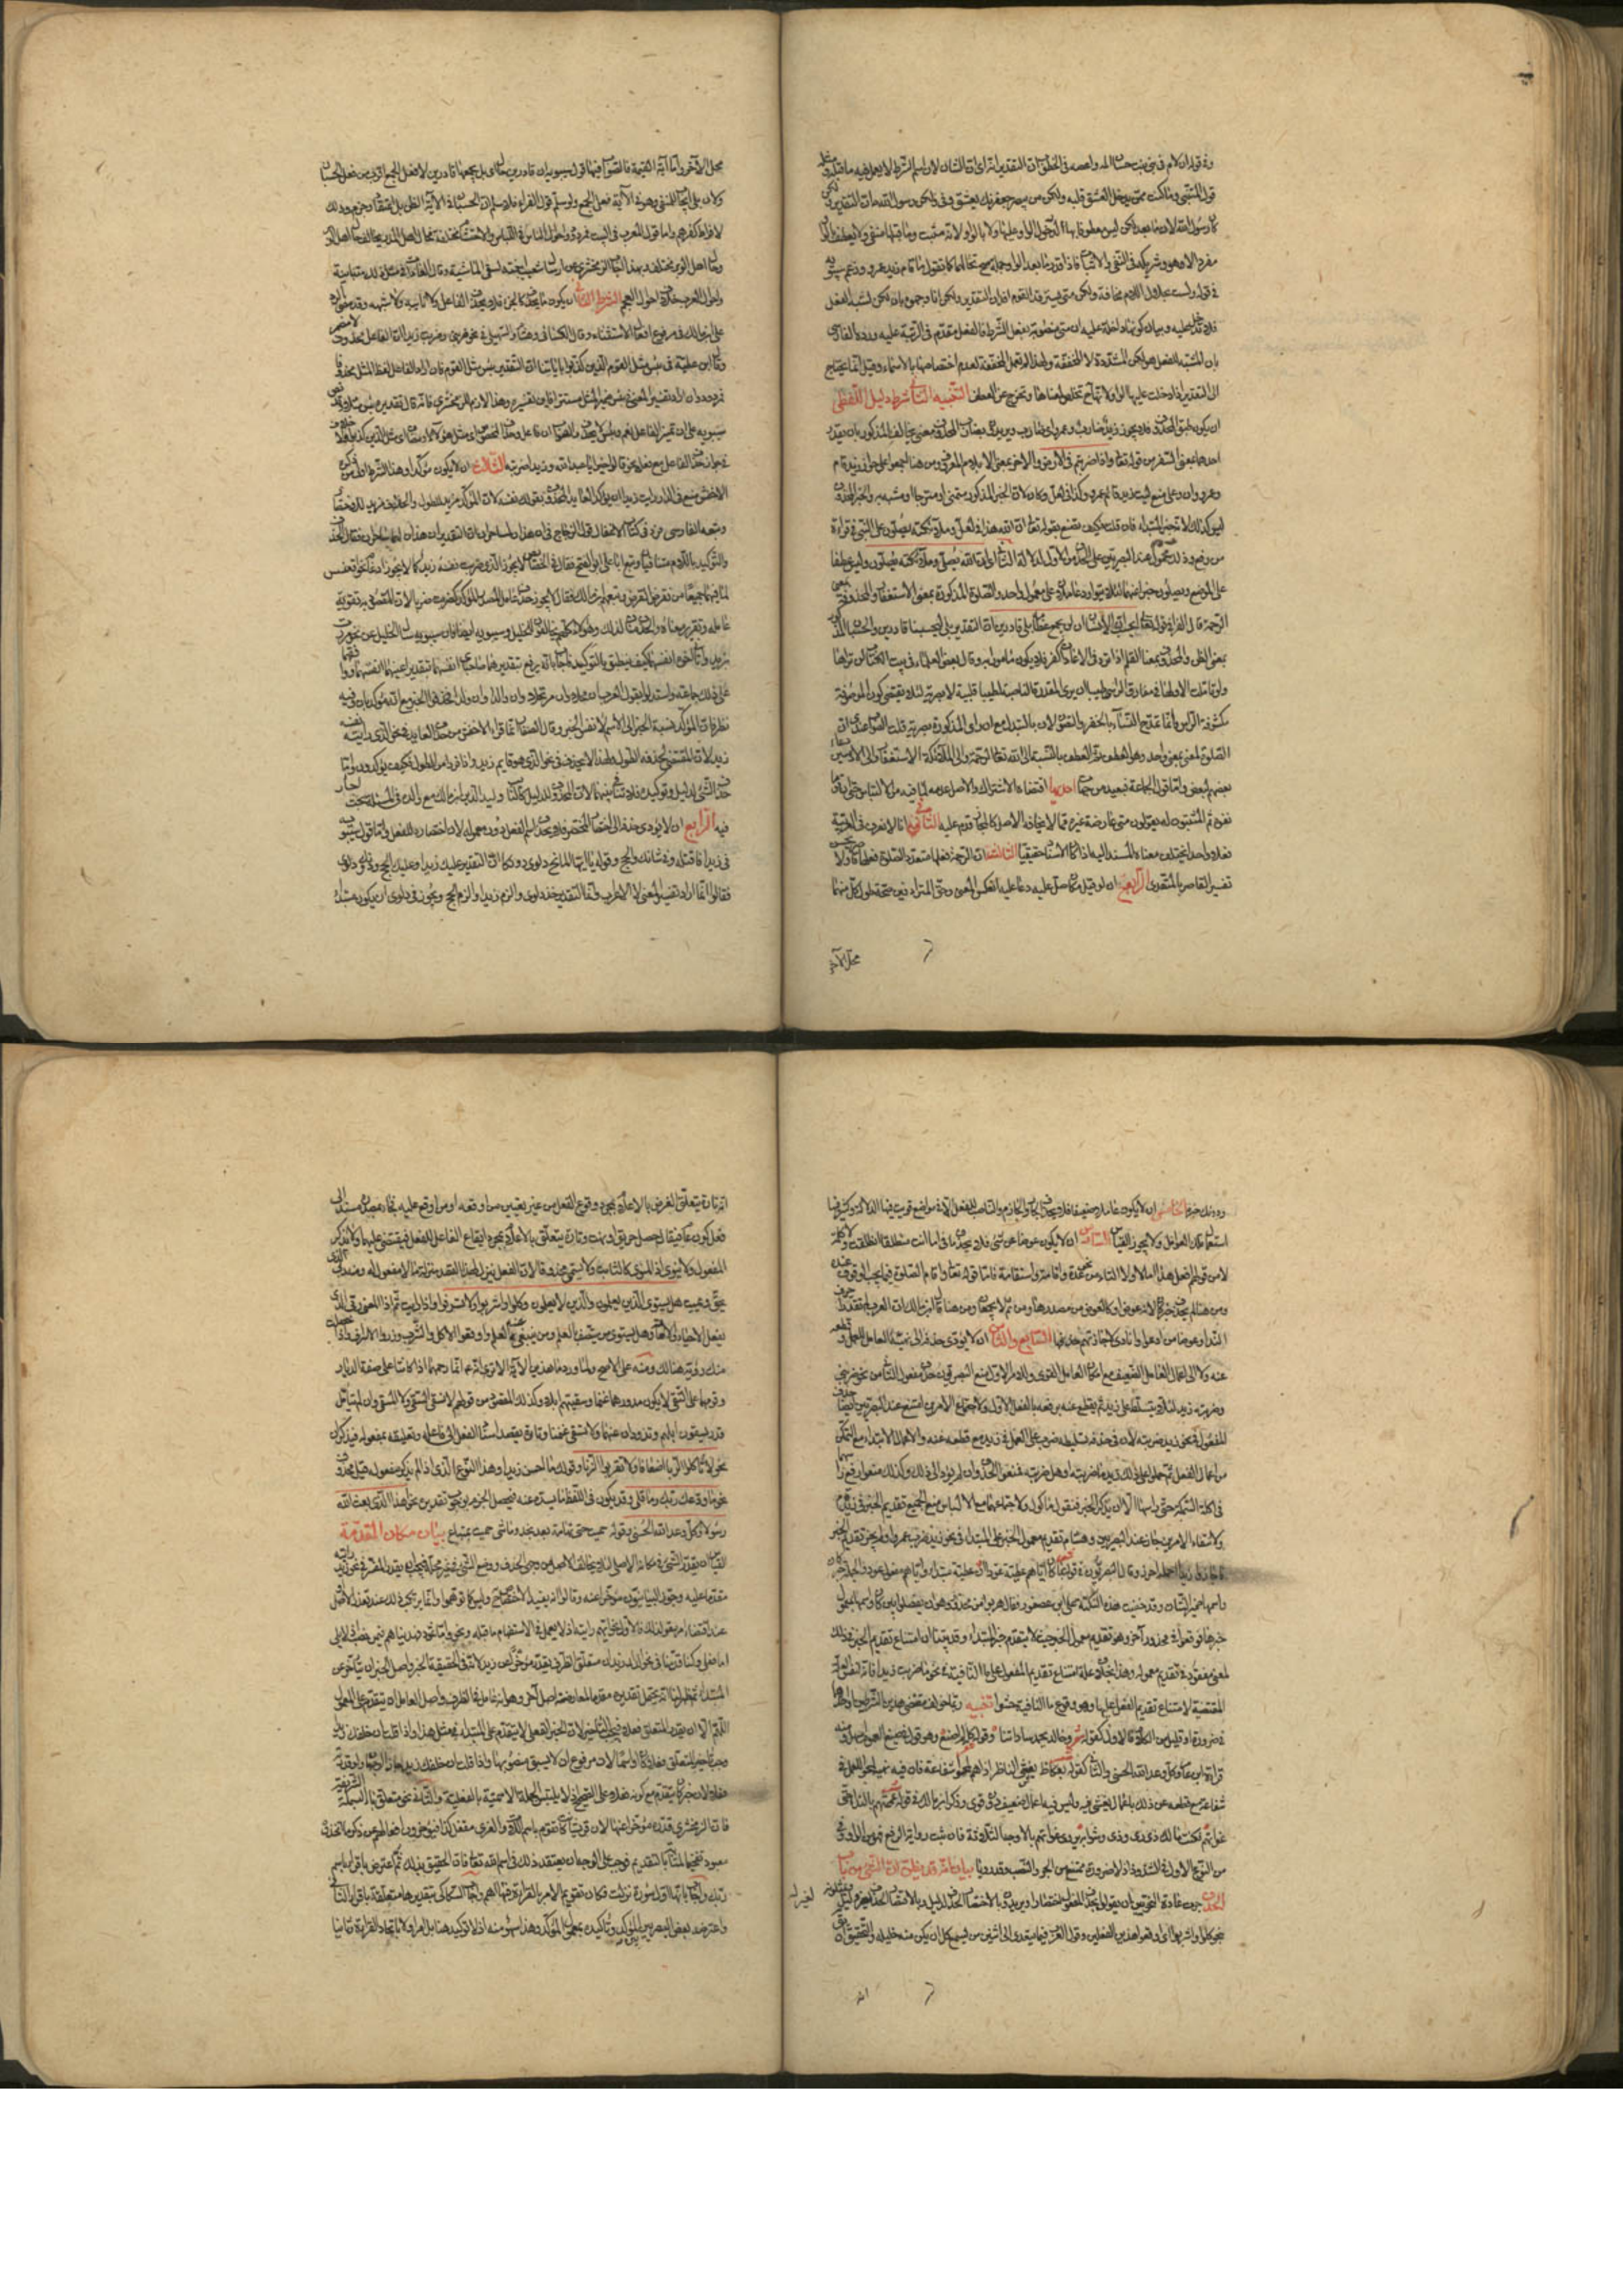 وفي قوله ان لام في بني بنت حسان المه واعصه في الخطوب ان التقدير انه اي ان الشان لان اسم الشرط لا يعمل فيه ما قبله ومثله
قول المتنبي وما كنت ممن يدخل العشق قلبه ولكن من يبصر جفونك يعشق وفي ولكن رسول الله ان التقدير ولكن
كان رسول الله لان ما بعد لكن ليس معطوفا بها لدخول الواو عليها ولا بالواو لانه مثبت وما قبلها منفي ولا يعطف بالواو
مفرد الا وهو شريكه في النفي والاثبات فاذا قدر ما بعد الواو جملة صح تخالفهما كما تقول ما قام زيد وقام عمرو وزعم سيبويه
في قوله ولست بحلال التلاع مخافة ولكن متى يسترفد القوم ارفد ان التقدير ولكن انا ووجهوه بان لكن تشبه الفعل
فلا تدخل عليه وبيان كونها داخلة عليه ان متى منصوبة بفعل الشرط فالفعل مقدم في الرتبة عليه ورده الفارسي
بان المشبه بالفعل هو لكن المشددة لا المخففة ولهذا لم تعمل المخففة لعدم اختصاصها بالاسماء وقيل انما يحتاج
الى التقدير اذا دخلت عليها الواو لانها تخلص لمعناها وتخرج عن العطف التنبيه الثاني شرط دليل اللفظي
ان يكون طبق المحذوف فلا يجوز زيد ضارب وعمرو اي ضارب ويريد بضارب المحذوف معنى يخالف المذكور بان يقدر
احدهما بمعنى السفر من قوله تعالى واذا ضربتم في الارض والاخر بمعنى الايلام المعروف ومن هنا اجمعوا على جواز زيد قام
وعمرو وان وعلى منع ليت زيدا قائم وعمرو وكذا في لعل وكأن لان الخبر المذكور متمنى او مترجى او مشبه به والخبر المحذوف
ليس كذلك لانه خبر المبتدأ فان قلت كيف تصنع بقوله تعالى ان الله وملائكته يصلون على النبي في قراءة
من رفع وذلك محمول عند البصريين على الحذف من الاول لدلالة الثاني اي ان الله يصلي وملائكته يصلون وليس عطفا
على الموضع ويصلون خبرا عنهما لئلا يتوارد عاملان على معمول واحد والصلوة المذكورة بمعنى الاستغفار والمحذوفة بمعنى
الرحمة قال الفراء في قوله تعالى ايحسب الانسان ان لن نجمع عظامه بلى قادرين ان التقدير بلى ليحسبنا قادرين والحسبان المذكور
بمعنى الظن والمحذوف بمعنى العلم اذ التردد في الاعادة كفر فلا يكون مامورا به وقال بعض العلماء في بيت الكتاب لن تراها
ولو تاملت الا ولها في مفارق الراس طيبا ان يرى المقدرة الناصبة لطيبا قلبية لا بصرية لئلا يقتضي كون الموصوفة
مكشوفة الراس وانما تمدح النساء بالخفر والتصون لا بالتبذل مع ان راى المذكورة بصرية قلت الصواب عندي ان
الصلوة لغة بمعنى واحد وهو العطف ثم العطف بالنسبة الى الله تعالى الرحمة والى الملائكة الاستغفار والى الادميين دعاء
بعضهم لبعض واما قول الجماعة فبعيد من جهات احديها اقتضاءه الاشتراك والاصل عدمه لما فيه من الالباس حتى ان قوما
نفوه ثم المثبتون له يقولون متى عارضه غيره مما يخالف الاصل كالمجاز قدم عليه الثانية انا لا نعرف في العربية
فعلا واحدا يختلف معناه المسند اليه اذا كان الاسناد حقيقيا الثالثة ان الرحمة فعلها متعد والصلوة فعلها قاصر ولا يحسن
تفسير القاصر بالمتعدي الرابعة انه لو قيل مكان صلى عليه دعا عليه انعكس المعنى وحق المترادفين صحة حلول كل منهما
محل الآخر
محل الآخر واما آية القيمة فالصواب فيها قول سيبويه ان قادرين حال اي بلى نجمعها قادرين لان فعل الجمع اقرب من فعل الحسبان
ولان بلى ايجاب للمنفي وهو في الآية فعل الجمع ولو سلم قول الفراء فلا نسلم ان الحسبان في الآية الظن بل اعتقاد وجزم وذلك
لافراط كفرهم واما قول المعرب في البيت فمردود واحوال الناس في اللباس والاحتشام مختلفة فحال اهل المدر يخالف حال اهل الوبر
وحال اهل الوبر مختلف وبهذا اجاب الزمخشري عن ارسال شعيب ابنتيه لسقي الماشية وقال العادات في مثل ذلك متباينة
واحوال العرب خلاف احوال العجم الشرط الثاني ان لا يكون ما يحذف كالجزء فلا يحذف الفاعل ولا نائبه ولا مشبهه وقد مضى الرد
على ابن مالك في مرفوع افعال الاستثناء وقال الكسائي وهشام والسهيلي في نحو ضربني وضربت زيدا ان الفاعل محذوف لا مضمر
وقال ابن عطية في بئس مثل القوم الذين كذبوا بآيات الله ان التقدير بئس المثل مثل القوم فان اراد ان الفاعل لفظ المثل محذوفا
فمردود وان اراد تفسير المعنى وفي بئس ضمير المثل مستتر فاين تفسيره وهذا لازم للزمخشري فانه قال تقديره بئس مثلا وقد نص
سيبويه على ان تمييز فاعل نعم وبئس لا يحذف والصواب ان مثل القوم فاعل وحذف المخصوص اي مثل هؤلاء او مضاف اي مثل الذين كذبوا ولا خلاف
في جواز حذف الفاعل مع فعله نحو قالوا خيرا ويا عبد الله وزيدا ضربته الثالث ان لا يكون مؤكدا وهذا الشرط اول من ذكره
الاخفش منع في نحو الذي رايت زيد ان يؤكد العائد المحذوف بقولك نفسه لان المؤكد مريد للطول والحاذف مريد للاختصار
وتبعه الفارسي فرد في كتاب الاغفال قول الزجاج في ان هذان لساحران ان التقدير ان هذان لهما ساحران فقال الحذف
والتوكيد باللام متنافيان وتبع ابا علي ابو الفتح فقال في الخصائص لا يجوز الذي ضربت نفسه زيد كما لا يجوز ادغام نحو اقعنسس
لما فيهما جميعا من نقض الغرض وتبعهم ابن مالك فقال لا يجوز حذف عامل المصدر المؤكد كضربت ضربا لان المقصود به تقوية
عامله وتقرير معناه والحذف مناف لذلك وهؤلاء كلهم مخالفون للخليل وسيبويه ايضا فان سيبويه سأل الخليل عن نحو مررت
بزيد واتاني اخوه انفسهما كيف ينطق بالتوكيد فاجابه بانه يرفع بتقدير هما صاحباي انفسهما وينصب بتقدير اعنيهما انفسهما ووافقهما
على ذلك جماعة واستدلوا بقول العرب ان محلا وان مرتحلا وان مالا وان ولدا فحذفوا الخبر مع انه مؤكد بان وفيه
نظر فان المؤكد نسبة الخبر الى الاسم لا نفس الخبر وقال الصفار انما فر الاخفش من حذف العائد في نحو الذي رايته نفسه
زيد لان المقتضي للحذف الطول ولهذا لا يحذف في نحو الذي هو قائم زيد فاذا فروا من الطول فكيف يؤكدون واما
حذف الشيء لدليل وتوكيده فلا تنافي بينهما لان المحذوف لدليل كالثابت ولبدر الدين ابن مالك مع والده في المسئلة بحث اجاد
فيه الرابع ان لا يؤدي حذفه الى اختصار المختصر فلا يحذف اسم الفعل دون معموله لانه اختصار للفعل واما قول سيبويه
في زيدا فاقتله وفي شانك والحج وقوله يا ايها المائح دلوي دونكا ان التقدير عليك زيدا وعليك الحج ودونك دلوي
فقالوا انما اراد تفسير المعنى لا الاعراب وانما التقدير خذ دلوي والزم زيدا والزم الحج ويجوز في دلوي ان يكون مبتدأ
ودونك خبره الخامس ان لا يكون عاملا ضعيفا فلا يحذف الجار والجازم والناصب للفعل الا في مواضع قويت فيها الدلالة وكثر فيها
استعمال تلك العوامل ولا يجوز القياس عليها السادس ان لا يكون عوضا عن شيء فلا تحذف ما في اما انت منطلقا انطلقت ولا كلمة
لا من قولهم افعل هذا اما لا ولا التاء من عدة واقامة واستقامة فاما قوله تعالى واقام الصلوة فمما يجب الوقوف عنده
ومن هنا لم يحذف خبر كان لانه عوض او كالعوض من مصدرها ومن ثم لا يجتمعان ومن هنا قال ابن مالك ان العرب لم تقدر حرف
النداء عوضا من ادعو او انادي لاجازتهم حذفها السابع والثامن ان لا يؤدي حذفه الى تهيئة العامل للعمل وقطعه
عنه ولا الى اعمال العامل الضعيف مع امكان العامل القوي وللامر الاول منع البصريون حذف مفعول الثاني من نحو ضربني
وضربته زيد لئلا يتسلط على زيد ثم يقطع عنه برفعه بالفعل الاول ولاجتماع الامرين امتنع عند البصريين ايضا حذف
المفعول في نحو زيد ضربته لان في حذفه تسليط ضرب على العمل في زيد مع قطعه عنه واعمال الابتداء مع التمكن
من اعمال الفعل ثم حملوا على ذلك زيد ما ضربته او هل ضربته فمنعوا الحذف وان لم يؤد الى ذلك وكذلك منعوا رفع راسها
في اكلت السمكة حتى راسها الا ان يذكر الخبر فتقول ماكول ولاجتماعهما مع الالباس منع الجميع تقديم الخبر في زيد قام
ولانتفاء الامرين جاز عند البصريين وهشام تقديم معمول الخبر على المبتدأ في نحو زيد ضرب عمرا وان لم يجز تقديم الخبر
فاجازوا زيدا اجله احرز وقال البصريون في قوله بما كان اياهم عطية عودا ان عطية مبتدأ واياهم مفعول عود والجملة خبر كان
واسمها ضمير الشان وقد خفيت هذه النكتة على ابن عصفور فقال هربوا من محذور وهو ان يفصلوا بين كان واسمها بمعمول
خبرها فوقعوا في محذور آخر وهو تقديم معمول الخبر حيث لا يتقدم خبر المبتدأ وقد بينا ان امتناع تقديم الخبر في ذلك
لمعنى مفقود في تقديم معموله وهذا بخلاف علة امتناع تقديم المفعول على ما النافية في نحو ما ضربت زيدا فانه لنفس العلة
المقتضية لامتناع تقديم الفعل عليها وهو وقوع ما النافية حشوا تنبيه ربما خولف مقتضى هذين الشرطين او احدهما
في ضرورة او قليل من الكلام فالاول كقوله وخالد يحمد ساداتنا وقوله كله لم اصنع وهو في صيغ العموم اسهل ومنه
قراءة ابن عامر وكل وعد الله الحسنى والثاني كقوله بعكاظ يعشي الناظرين اذا هم لمحوا شعاعه فان فيه تهيئة لمحوا للعمل في
شعاعه مع قطعه عن ذلك باعمال يعشي فيه وليس فيه اعمال ضعيف دون قوي وذكر ابن مالك في قوله عممتهم بالندى حتى
غواتهم فكنت مالك ذي غي وذي رشد انه يروى غواتهم بالاوجه الثلاثة فان ثبتت رواية الرفع فهو من الوارد في
من النوع الاول في الشذوذ اذ لا ضرورة تمنع من الجر والنصب وقد رويا بيان انه قد يظن ان الشيء من باب
الحذف جرت عادة النحويين ان يقولوا يحذف المفعول اختصارا واقتصارا ويريدون بالاختصار الحذف لدليل وبالاقتصار الحذف لغير دليل ويمثلونه
بنحو كلوا واشربوا اي اوقعوا هذين الفعلين وقول العرب فيما يتعدى الى اثنين من يسمع يخل اي يكن منه خيلة والتحقيق ان يقال
انه
انه تارة يتعلق الغرض بالاعلام بمجرد وقوع الفعل من غير تعيين من اوقعه او من اوقع عليه فيجاء بمصدره مسندا الى
فعل كون عام فيقال حصل حريق او نهب وتارة يتعلق بالاعلام بمجرد ايقاع الفاعل للفعل فيقتصر عليهما ولا يذكر
المفعول ولا ينوى اذ المنوي كالثابت ولا يسمى محذوفا لان الفعل ينزل لهذا القصد منزلة ما لا مفعول له ومنه ربي الذي
يحيي ويميت هل يستوي الذين يعلمون والذين لا يعلمون وكلوا واشربوا ولا تسرفوا واذا رايت ثم اذ المعنى ربي الذي
يفعل الاحياء والاماتة وهل يستوي من يتصف بالعلم ومن ينتفي عنه العلم واوقعوا الاكل والشرب وذروا الاسراف واذا حصلت
منك رؤية هنالك ومنه على الاصح ولما ورد ماء مدين الآية الا ترى انه عم انما رحمهما اذ كانتا على صفة الذياد
وقومهما على السقي لا لكون مذودهما غنما ومسقيهم ابلا وكذلك المقصود من قولهم لا نسقي السقي لا المسقي ومن لم يتامل
قدر يسقون ابلهم وتذودان غنمهما ولا نسقي غنمنا وتارة يقصد اسناد الفعل الى فاعله وتعليقه بمفعوله فيذكران
نحو لا تاكلوا الربا اضعافا ولا تقربوا الزنا وقولك ما احسن زيدا وهذا النوع الذي اذا لم يذكر مفعوله قيل محذوف
نحو ما ودعك ربك وما قلى وقد يكون في اللفظ ما يستدعيه فيحصل الجزم بوجوب تقديره نحو اهذا الذي بعث الله
رسولا وكل وعد الله الحسنى وقوله حميت حمى تهامة بعد نجد وما شيء حميت بمستباح بيان مكان المقدر
القياس ان يقدر الشيء في مكانه الاصلي لئلا يخالف الاصل من وجهين الحذف ووضع الشيء في غير محله فيجب ان يقدر المفسر في نحو زيدا رايته
مقدما عليه وجوز البيانيون مؤخرا عنه وقالوا انه يفيد الاختصاص وليس كما توهموا وانما يرتكب ذلك عند تعذر الاصل
عند اقتضاء امر معنوي لذلك فالاول نحو ايهم رايته اذ لا يعمل في الاستفهام ما قبله ونحو واما ثمود فهديناهم فيمن نصب اذ لا يلي
اما فعل وكنا قدمنا في نحو في الدار زيد ان متعلق الظرف يقدر مؤخرا عن زيد لانه في الحقيقة الخبر واصل الخبر ان يتاخر عن
المبتدأ ثم ظهر لنا انه يحتمل تقديره مقدما لمعارضة اصل آخر وهو انه عامل في الظرف واصل العامل ان يتقدم على المعمول
اللهم الا ان يقدر المتعلق فعلا فيجب التاخير لان الخبر الفعلي لا يتقدم على المبتدأ في مثل هذا واذا قلت ان خلفك زيدا
وجب تاخير المتعلق فعلا كان او اسما لان مرفوع ان لا يسبق منصوبها واذا قلت كان خلفك زيد جاز الوجهان ولو قدرته
فعلا لان خبر كان يتقدم مع كونه فعلا على الصحيح اذ لا يلتبس الجملة الاسمية بالفعلية والثاني نحو متعلق باء البسملة الشريفة
فان الزمخشري قدره مؤخرا عنها لان قريشا كانت تقول باسم اللات والعزى نفعل كذا فيؤخرون افعالهم عن ذكر ما اتخذوه
معبودا تفخيما لشانه بالتقديم فوجب على الموحد ان يعتقد ذلك في اسم الله تعالى فانه الحقيق بذلك ثم اعترض باقرأ باسم
ربك واجاب بانها اول سورة نزلت فكان تقديم الامر بالقراءة فيها اهم واجاب السكاكي بتقديرها متعلقة باقرأ الثاني
واعترضه بعض العصريين باستلزامه الفصل بين المؤكد وتاكيده بمعمول المؤكد وهذا سهو منه اذ لا توكيد هنا بل امر اولا بايجاد القراءة وثانيا